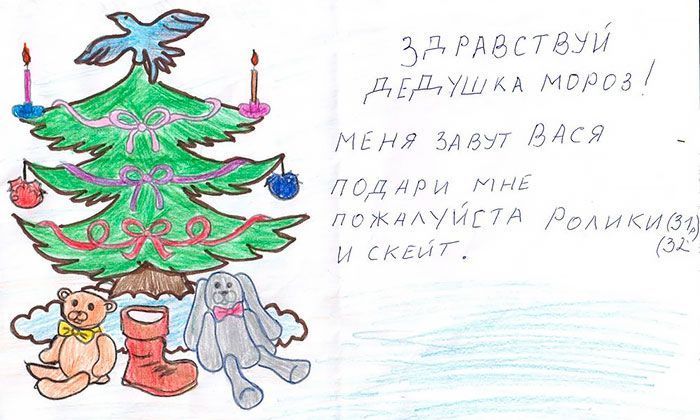 ЗДРАВСТВУЙ
ДЕДУШКА МОРОЗ!
МЕНЯ ЗАВУТ ВАСЯ
ПОДАРИ МНЕ
ПОЖАЛУЙСТА РОЛИКИ (31,)
И СКЕЙТ. (32